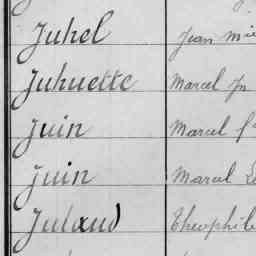 Juhel Jean
Juhuette Marcel
Juin Marcel
Juin Marcel
Julaud Theophile